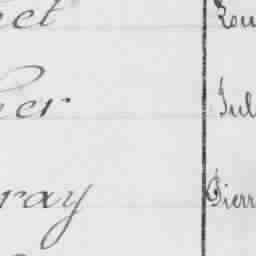 et Lou
er Jul
ray Pierr